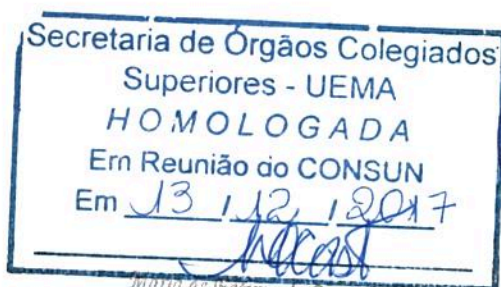 Secretaria de Órgãos Colegiados
Superiores - UEMA
HOMOLOGADA
Em Reunião do CONSUN
Em 13 / 12 / 2017